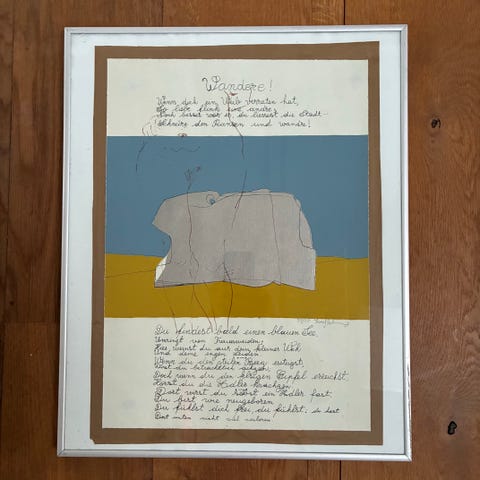 Wandere!
Wenn dich ein Weib verraten hat,
So liebe flink eine andre;
Noch besser wär es, du liessest die Stadt
Schnüre den Ranzen und wandre!
Du findest bald einen blauen See,
Umringt von Trauerweiden;
Hier weinst du aus dein kleines Weh
Und deine engen Leiden
Wenn du den steilen Berg ersteigst,
Wirst du beträchtlich ächzen;
Doch wenn du den felsigen Gipfel erreichst,
Hörst du die Adler krächzen
Dort wirst du selbst ein Adler fast,
Du bist wie neugeboren
Du fühlst dich frei du fühlst: du hast
Dort unten nicht viel verloren